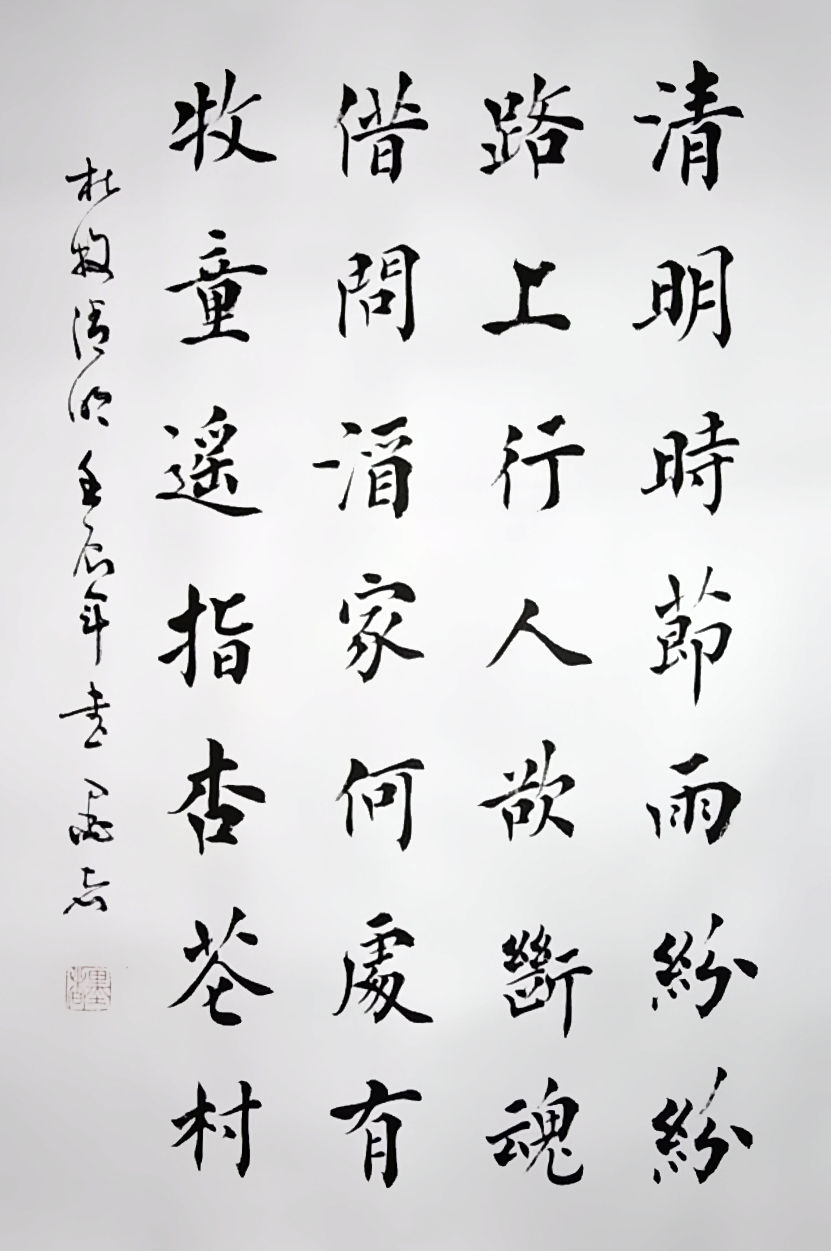 清明時節雨紛紛
路上行人欲斷魂
借問酒家何處有
牧童遙指杏花村
杜牧清明壬辰年書